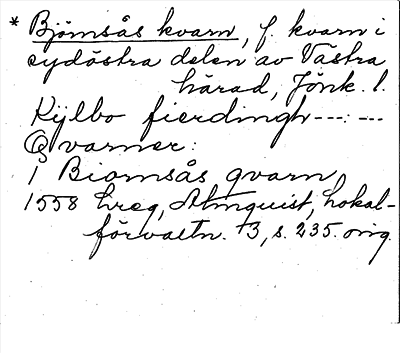 * Björnsås kvarn, f. kvarn i
sydöstra delen av Västra
härad, Jönk. l.
Kÿlbo fierdingh ---: ---
Qvarner:
1 Biornsås qvarn,
1558 Lreg, Almquist, Lokal-
förvaltn. 3, s. 235. orig.